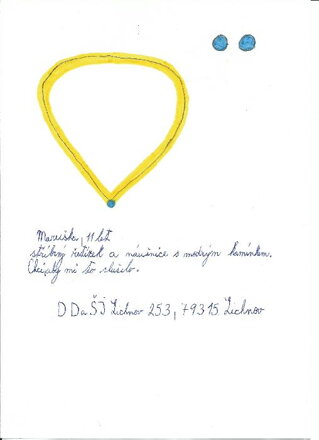 Maruška, 11 let
stříbrný řetízek a náušnice s modrým kamínkem.
Chci, aby mi to slušelo.
D D a ŠJ Lichnov 253, 793 15 Lichnov